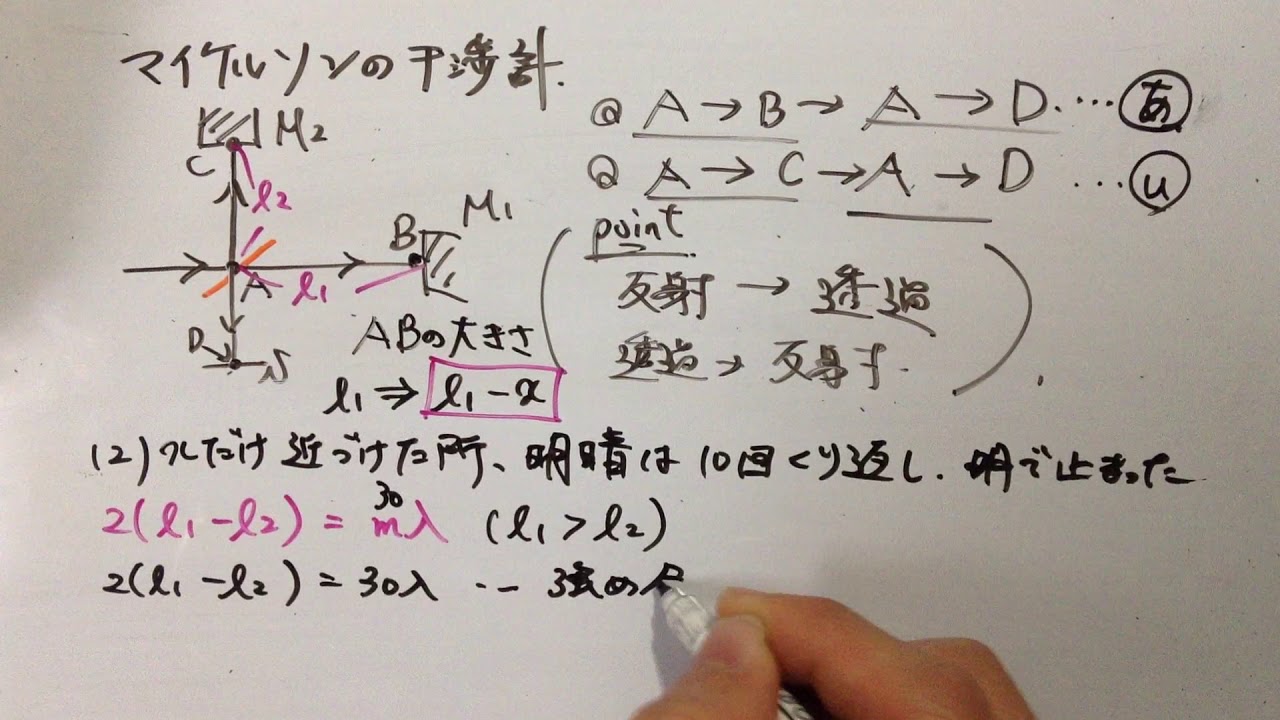 マイケルソンの干渉計.
C M2
l2
B M1
A l1
D
ABの大きさ
l1 ⇒ l1-x
@ A → B → A → D … あ
@ A → C → A → D … い
point
反射 → 透過
透過 → 反射.
(2) xだけ近づけた所、明暗は10回くり返し.明で止まった
30
2(l1-l2) = mλ (l1>l2)
2(l1-l2) = 30λ ‥